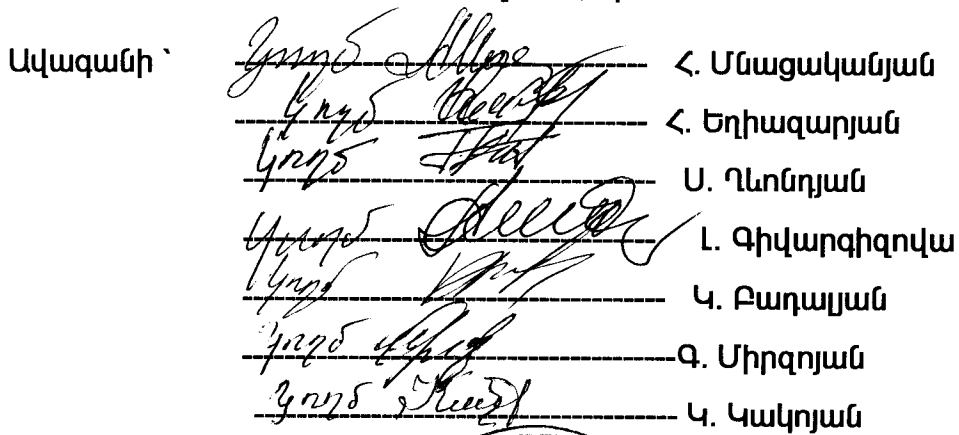 Ավագանի ՝ Կողմ Հ. Մնացականյան
Կողմ Հ. Եղիազարյան
Կողմ Ս. Ղևոնդյան
Կողմ Լ. Գիվարգիզովա
Կողմ Կ. Բադալյան
Կողմ Գ. Միրզոյան
Կողմ Կ. Կակոյան